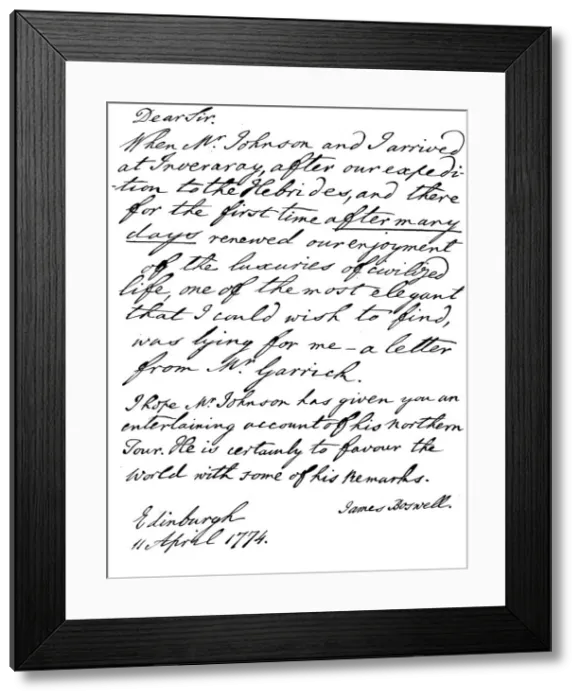 Dear Sir.
When Mr. Johnson and I arrived
at Inveraray, after our expedi-
-tion to the Hebrides, and there
for the first time after many
days renewed our enjoyment
of the luxuries of civilized
life, one of the most elegant
that I could wish to find,
was lying for me – a letter
from Mr. Garrick.
I hope Mr. Johnson has given you an
entertaining account of his northern
Tour. He is certainly to favour the
World with some of his Remarks.
James Boswell.
Edinburgh
11 April 1774.